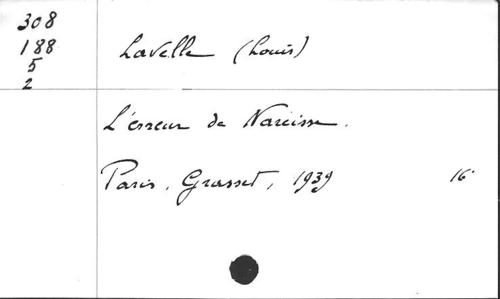 308
188
5
2
Lavelle (Louis)
L'erreur de Narcisse.
Paris, Grasset, 1939 16°